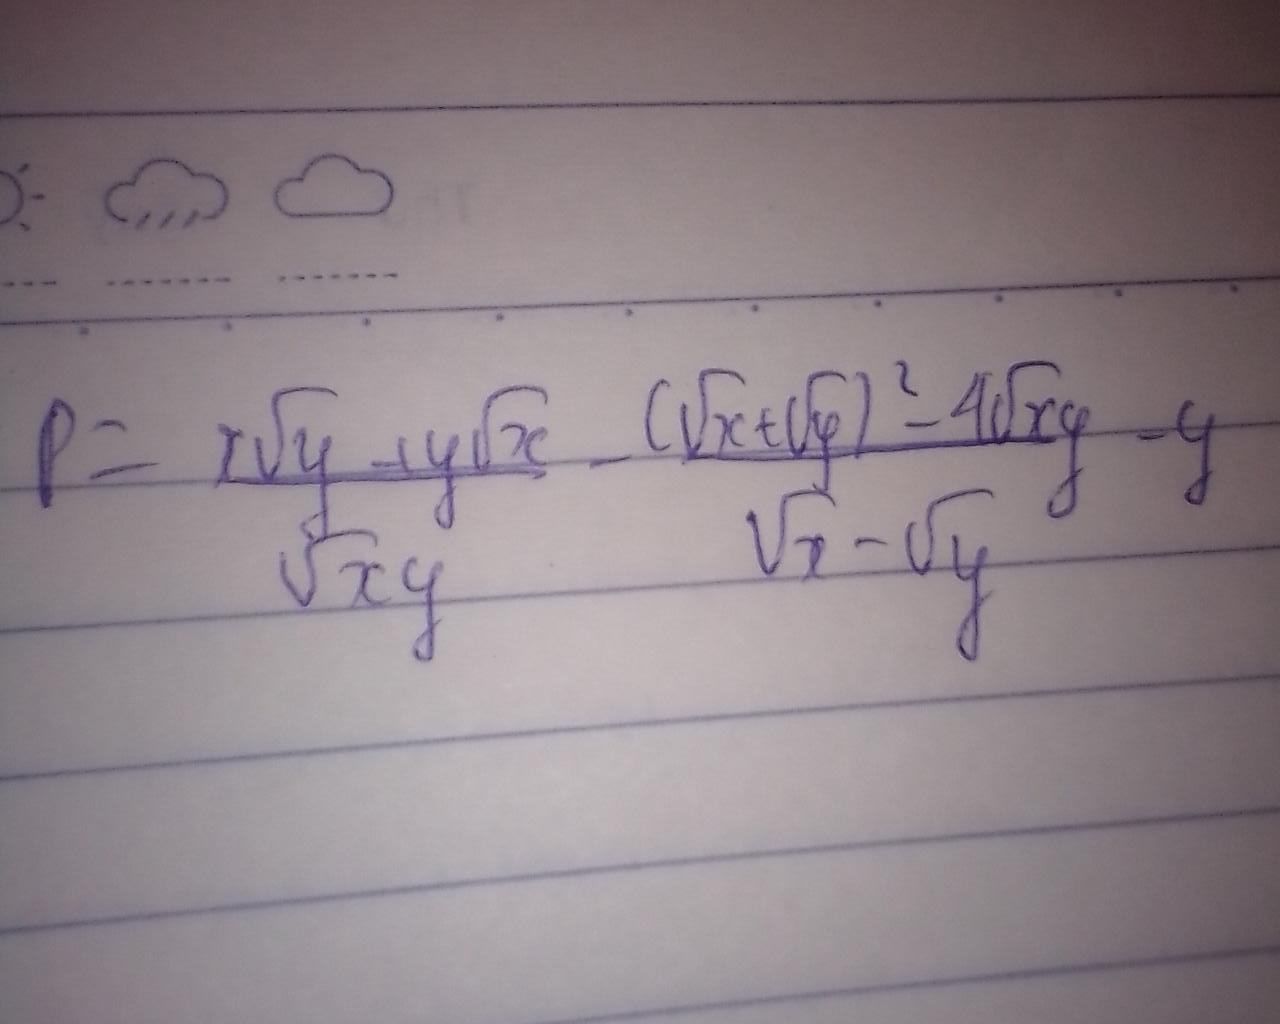 P = x√y + y√x / √xy - (√x + √y)² - 4√xy / √x - √y - y